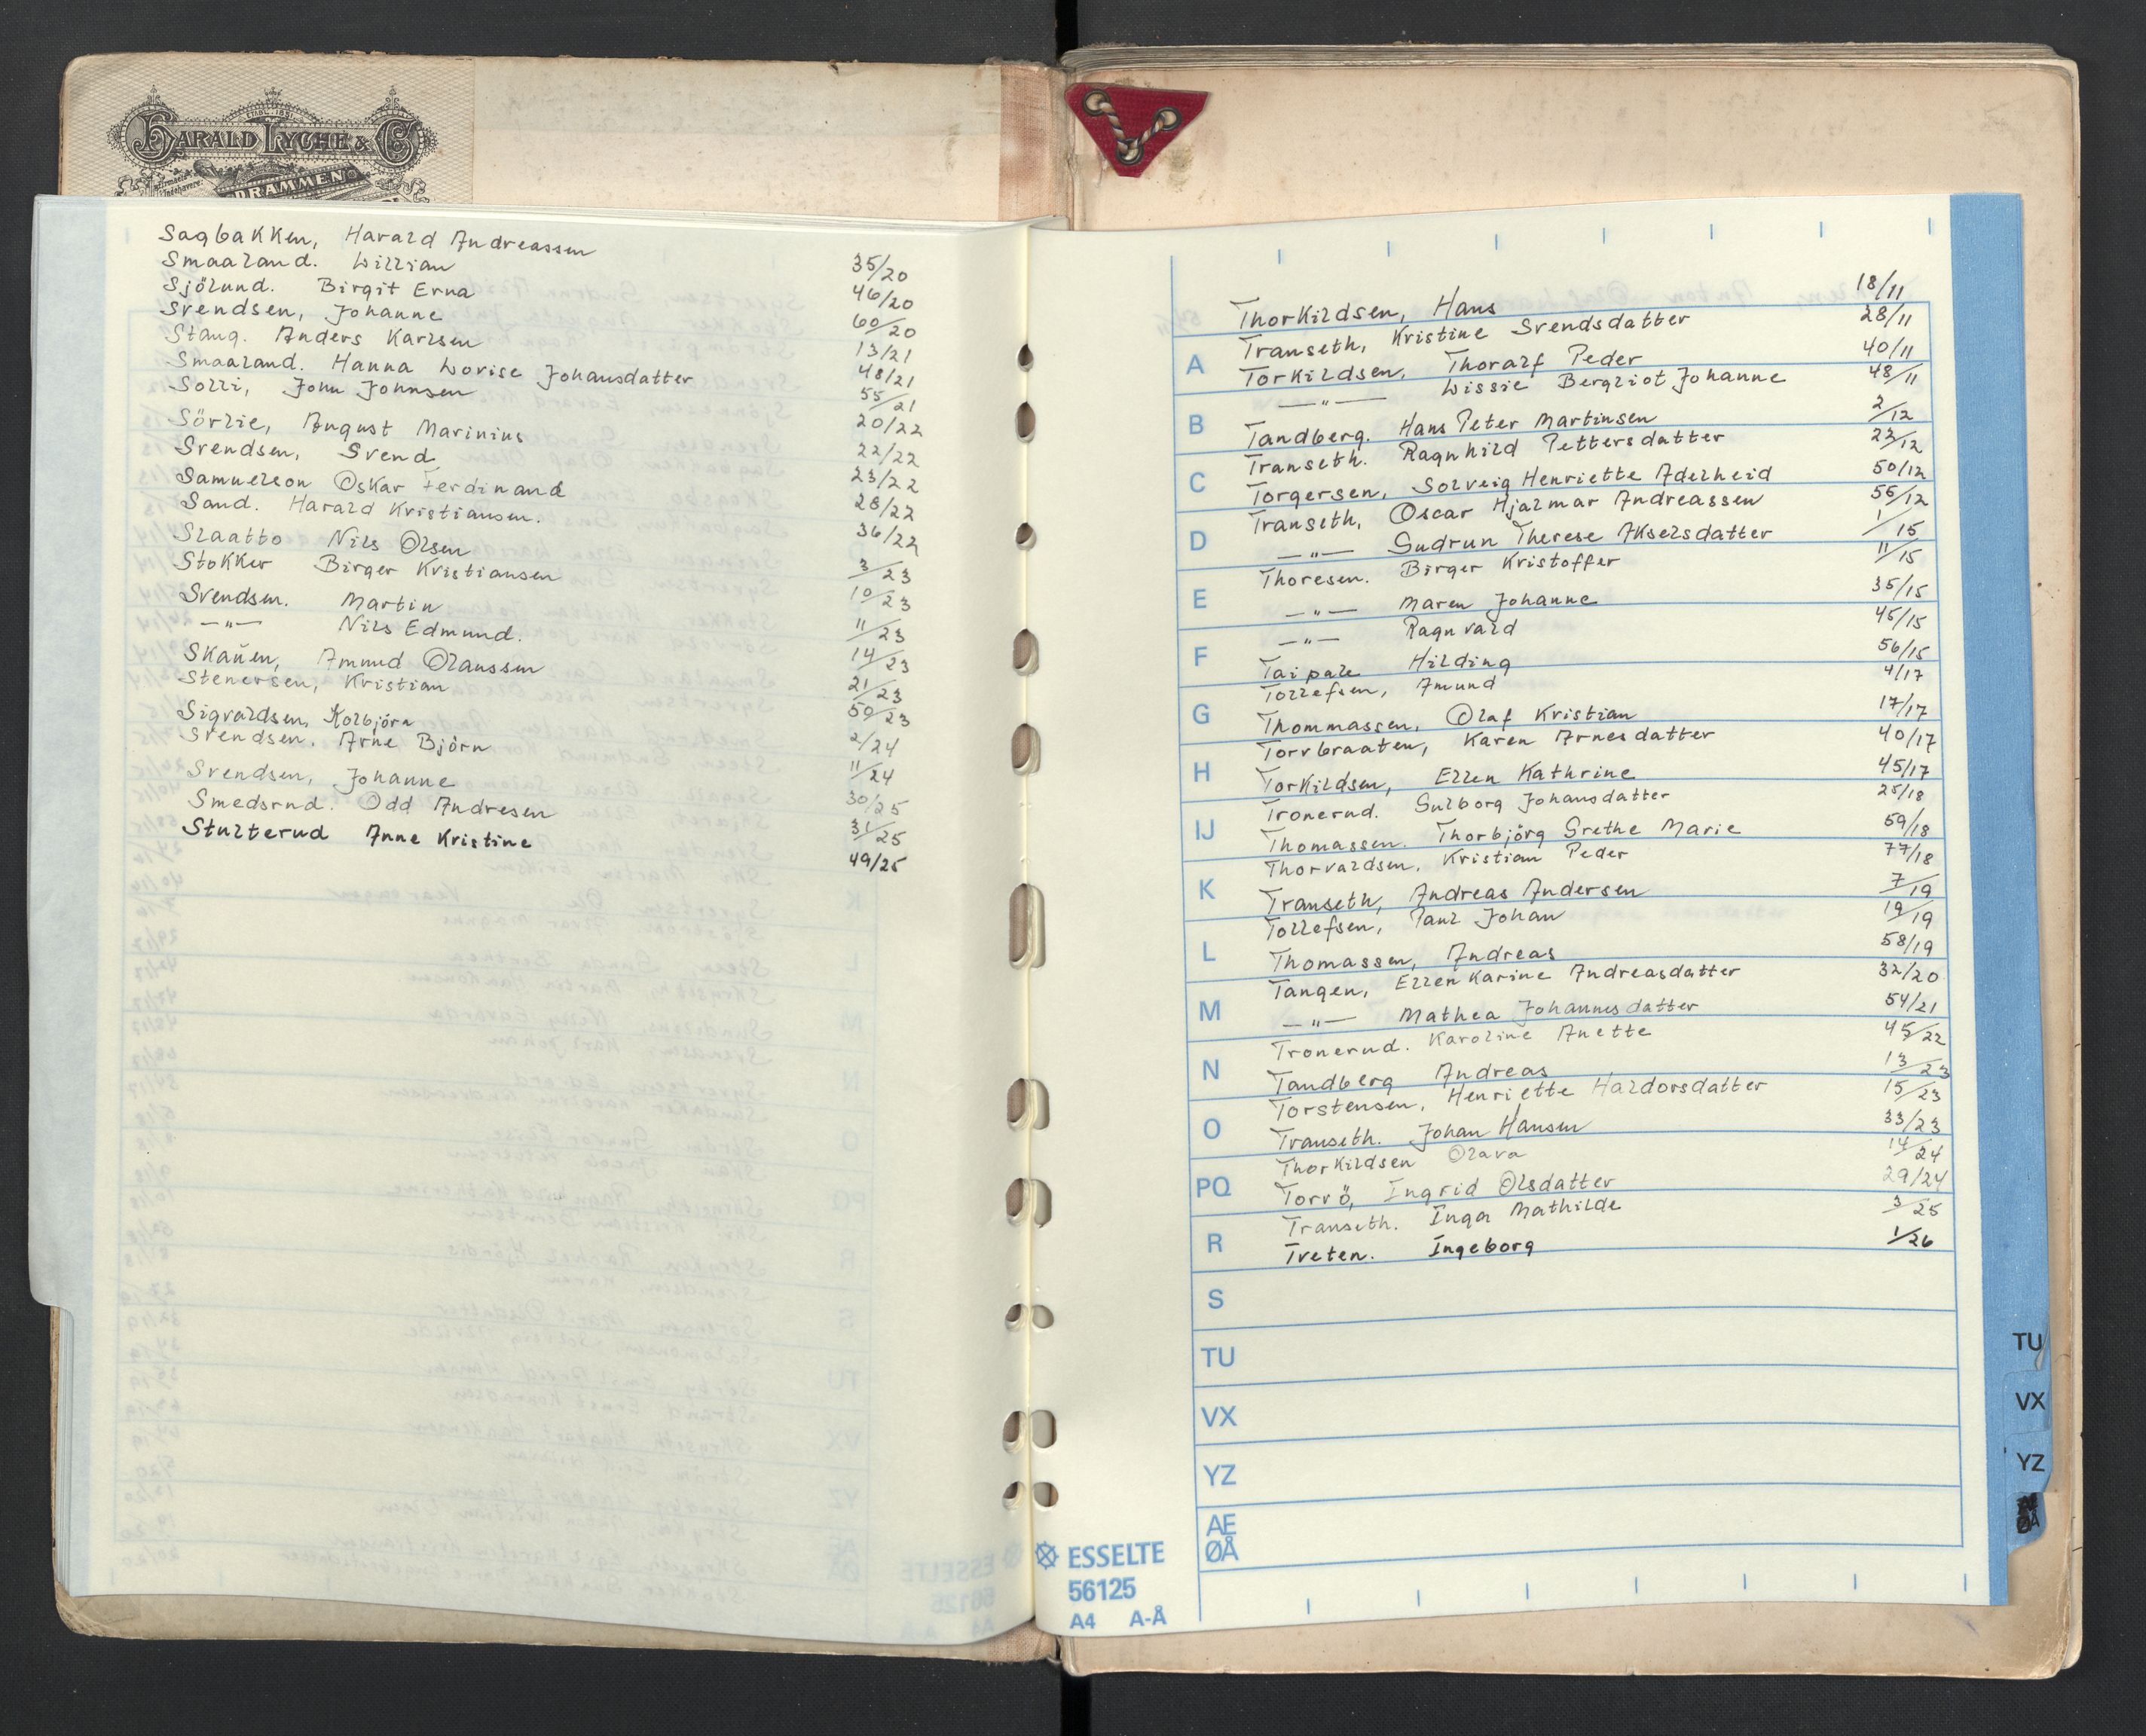 ETABL. 1891
HARALD LYCHE & Co
DRAMMEN
Sagbakken, Harald Andreassen 35/20
Smaaland. William 46/20
Sjölund. Birgit Erna 60/20
Svendsen, Johanne 13/21
Stang. Anders Karlsen 48/21
Smaaland. Hanna Lovise Johansdatter 55/21
Solli, John Johnsen 20/22
Sörlie, August Marinius 22/22
Svendsen, Svend 23/22
Samuelson Oskar Ferdinand 28/22
Sand. Harald Kristiansen. 36/22
Slaatto Nils Olsen 3/23
Stokker Birger Kristiansen 10/23
Svendsen. Martin 11/23
—"— Nils Edmund. 14/23
Skauen, Amund Olaussen 21/23
Stenersen, Kristian 50/23
Sigvaldsen, Kolbjörn 2/24
Svendsen. Arne Björn 11/24
Svendsen, Johanne 30/25
Smedsrud. Odd Andresen 31/25
Stulterud Anne Kristine 49/25
Thorkildsen, Hans 18/11
Transeth, Kristine Svendsdatter 28/11
Torkildsen, Thoralf Peder 40/11
—"— Lissie Bergliot Johanne 48/11
Tandberg. Hans Peter Martinsen 2/12
Transeth. Ragnhild Pettersdatter 23/12
Torgersen, Solveig Henriette Adelheid 50/12
Transeth, Oscar Hjalmar Andreassen 56/12
—"— Gudrun Therese Akselsdatter 1/15
Thoresen. Birger Kristoffer 11/15
—"— Maren Johanne 35/15
—"— Ragnvald 45/15
Taipale Hilding 56/15
Tollefsen, Amund 4/17
Thommassen, Olaf Kristian 17/17
Torvbraaten, Karen Arnesdatter 40/17
Torkildsen, Ellen Kathrine 45/17
Tronerud. Gulborg Johansdatter 25/18
Thomassen. Thorbjörg Grethe Marie 59/18
Thorvaldsen, Kristian Peder 77/18
Transeth, Andreas Andersen 7/19
Tollefsen, Paul Johan 19/19
Thomassen, Andreas 58/19
Tangen, Ellen Karine Andreasdatter 32/20
—"— Mathea Johannesdatter 54/21
Tronerud. Karoline Anette 45/22
Tandberg Andreas 13/23
Torstensen, Henriette Haldorsdatter 15/23
Transeth. Johan Hansen 33/23
Thorkildsen Olava 14/24
Torvö, Ingrid Olsdatter 29/24
Transeth. Inga Mathilde 3/25
Treten. Ingeborg 1/26
A
B
C
D
E
F
G
H
IJ
K
L
M
N
O
PQ
R
S
TU
VX
YZ
AE
ØÅ
TU
VX
YZ
AE
ØÅ
ESSELTE
56125
A4 A-Å